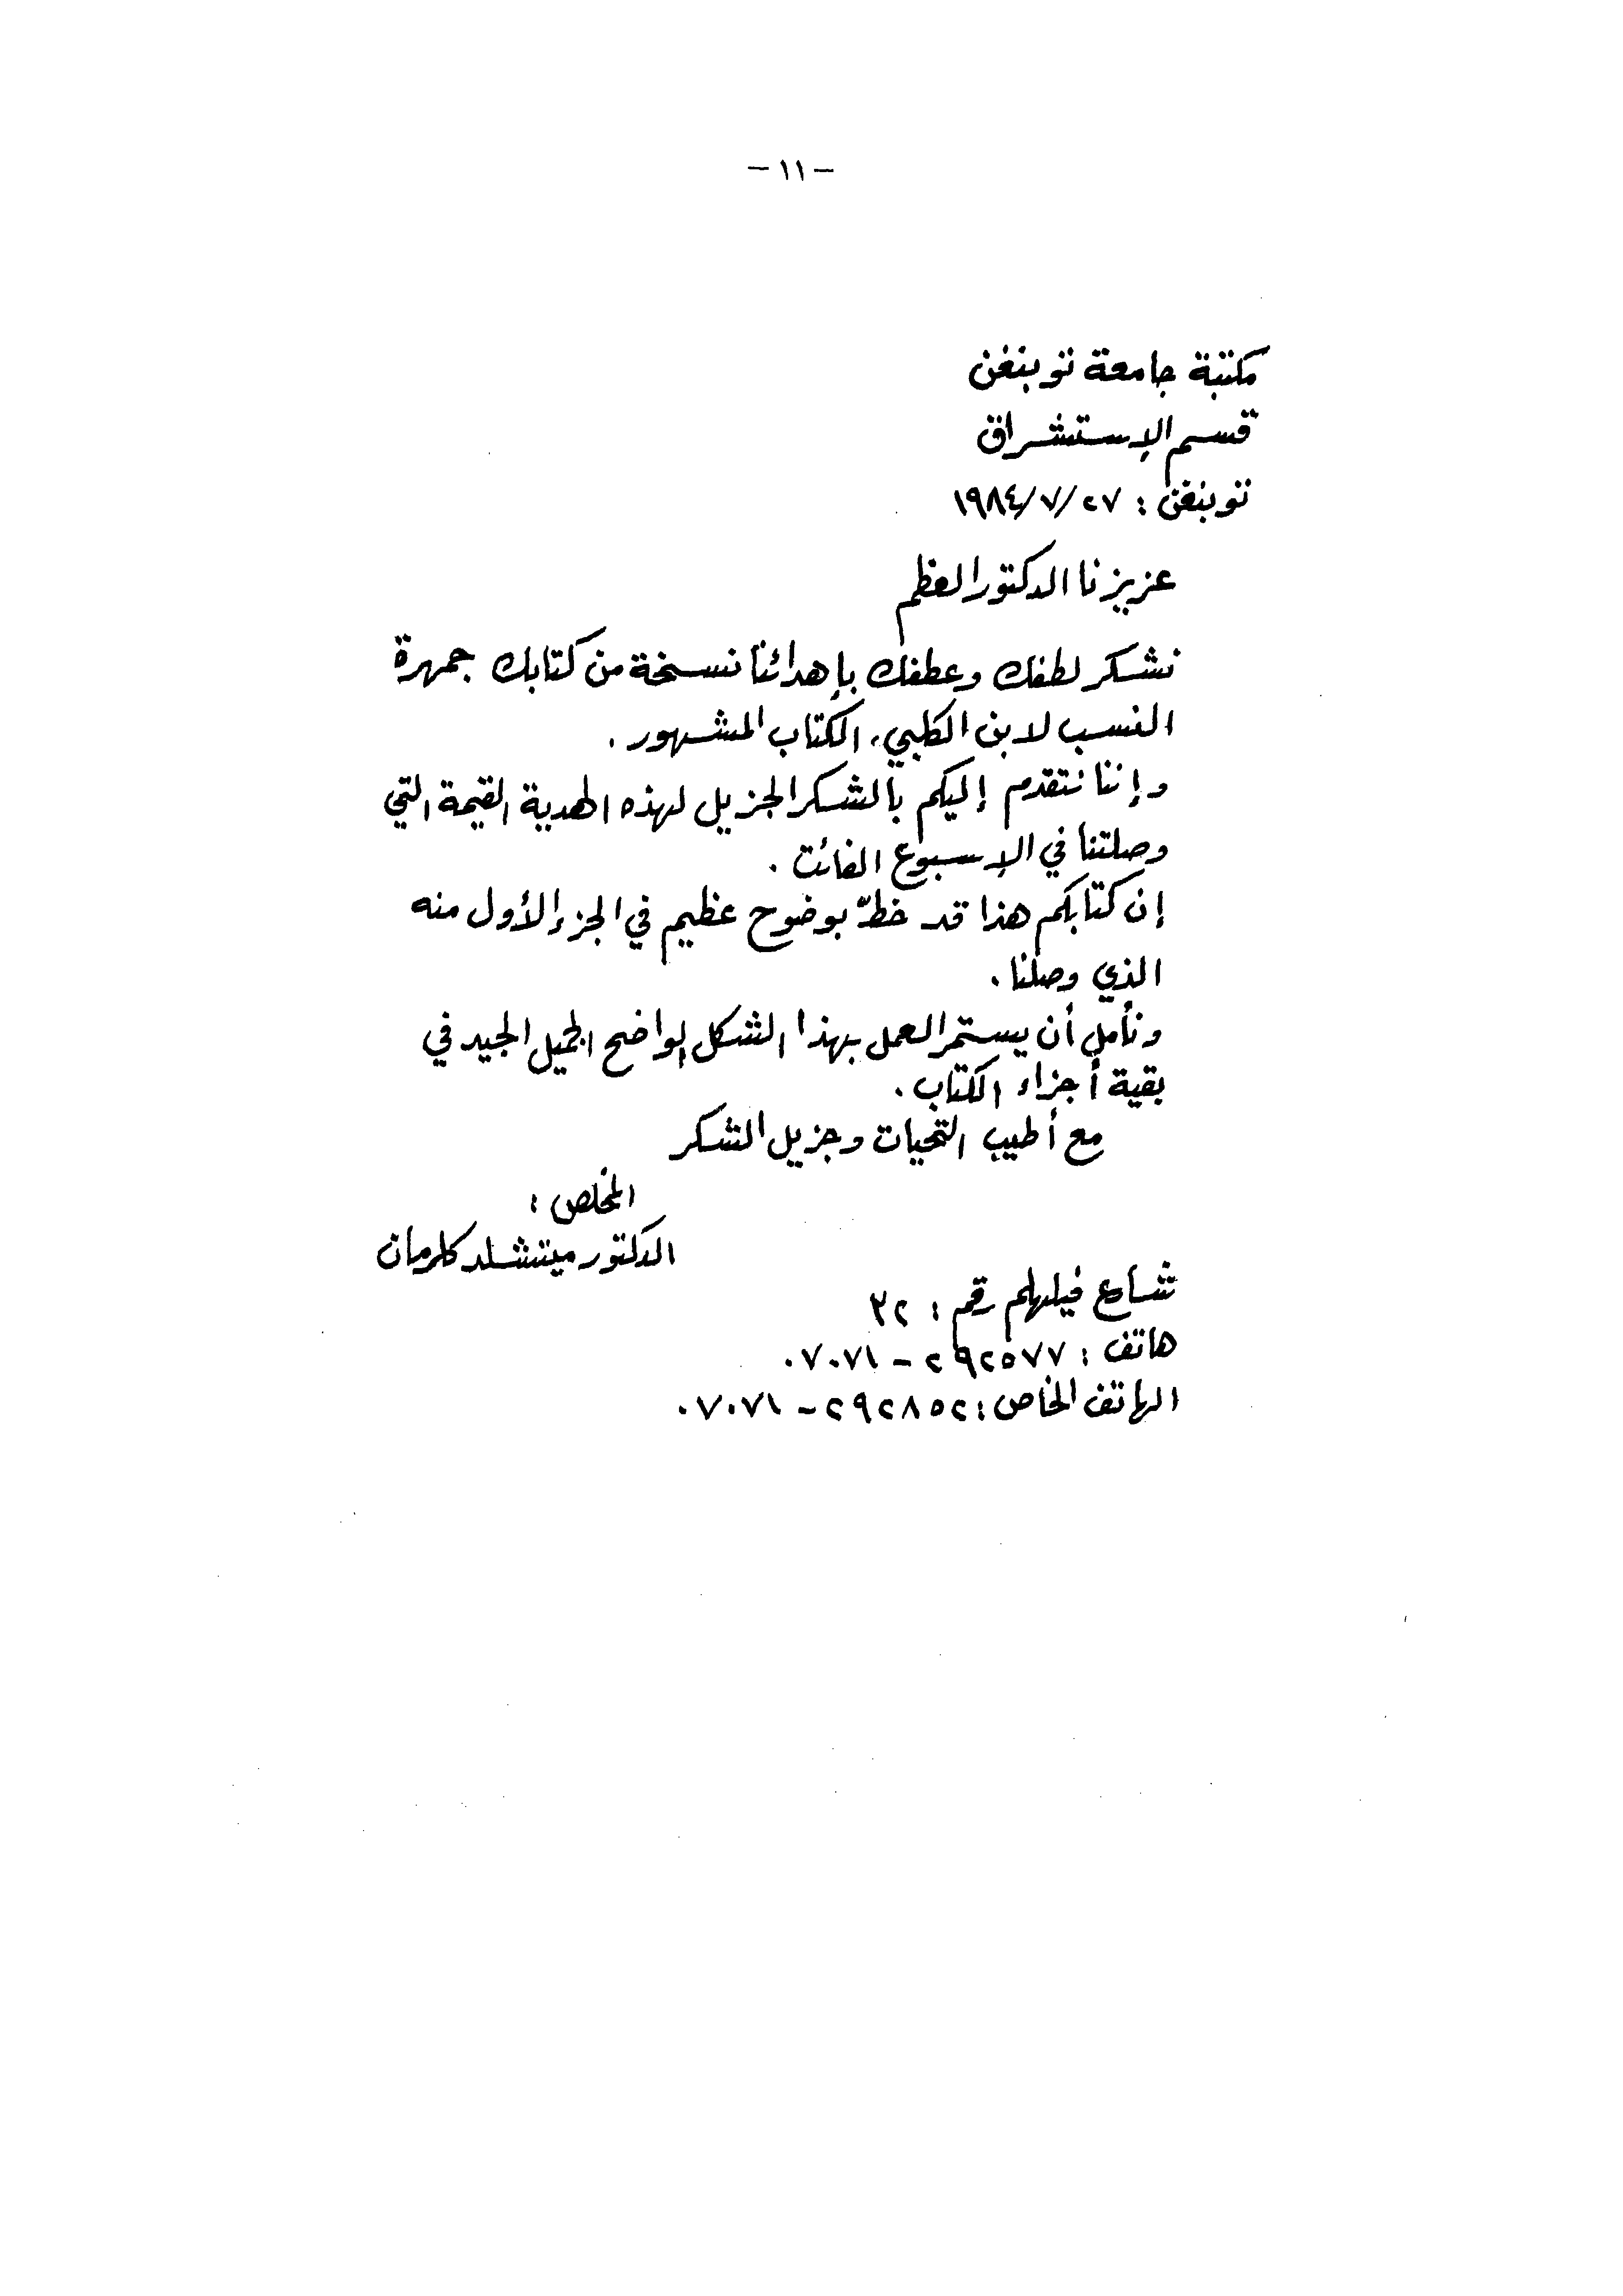 - ١١ -
مكتبة جامعة توبنغن
قسم الإستشراق
توبنغن : ٢٧/٧/١٩٨٤
عزيزنا الدكتور العظم
نشكر لطفك وعطفك بإهدائنا نسخة من كتابك جمهرة
النسب لابن الكلبي، الكتاب المشهور .
وإننا نتقدم إليكم بالشكر الجزيل لهذه الهدية القيمة التي
وصلتنا في الإسبوع الفائت .
إن كتابكم هذا قد خطّ بوضوح عظيم في الجزء الأول منه
الذي وصلنا .
ونأمل أن يستمر العمل بهذا الشكل الواضح الجميل الجيد في
بقية أجزاء الكتاب .
مع أطيب التحيات وجزيل الشكر
المخلص :
الدكتور ميتشلد كلرمان
شارع فيلهلم رقم : ٣٢
هاتف : ٢٩٢٥٧٧ - ٠٧٠٧١
الهاتف الخاص : ٢٩٢٨٥٢ - ٠٧٠٧١